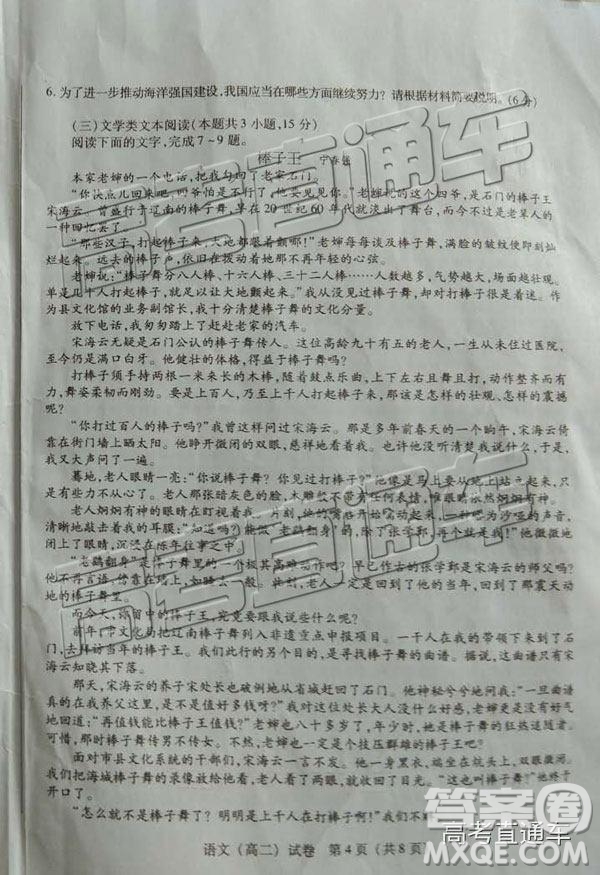 6. 为了进一步推动海洋强国建设,我国应当在哪些方面继续努力?请根据材料简要说明。(6分)
(三)文学类文本阅读(本题共3小题,15分)
阅读下面的文字,完成7~9题。
棒子王 宁春强
本家老婶的一个电话,把我勾回了老家石门。
“你快点儿回来吧,四爷怕是不行了,他要见见你。”老婶说的这个四爷,是石门的棒子王
宋海云。曾盛行于辽南的棒子舞,早在20世纪60年代就淡出了舞台,而今不过是老辈人的
一种回忆罢了。
“那些汉子,打起棒子来,大地都跟着颤哪!”老婶每每谈及棒子舞,满脸的皱纹便即刻灿
烂起来。远去的棒子声,依旧拨动着她那不再年轻的心弦。
老婶说:“棒子舞分八人棒、十六人棒、三十二人棒……人数越多,气势越大,场面越壮观。
单是几十人打起棒子,就会让大地颤起来。”我从没见过棒子舞,却对打棒子很是着迷。作
为县文化馆的业务副馆长,我十分清楚棒子舞的文化分量。
放下电话,我匆匆踏上了赶赴老家的汽车。
宋海云无疑是石门公认的棒子舞传人。这位高龄九十有五的老人,一生从未住过医院,
至今仍是满口白牙。他健壮的体格,得益于棒子舞吗?
打棒子须手持两根一米来长的木棒,随着鼓点乐曲,上下左右且舞且打,动作整齐而有
力,舞姿柔韧而刚劲。要是上百人,乃至上千人打起棒来,那该是怎样的壮观、怎样的震撼
呢?
“你打过百人的棒子吗?”我曾这样问过宋海云。那是多年前春天的一个晌午,宋海云倚
靠在街门墙上晒太阳。他睁开微闭的双眼,慈祥地看着我。也许他没听清楚我说什么,于是,
我又大声问了一遍。
蓦地,老人眼睛一亮:“你说棒子舞?你见过打棒子?”他像是马上要从地上站起来,只
是有些力不从心了。老人那张暗灰色的脸,木雕般不带任何表情,唯眼睛依然炯炯有神。
老人炯炯有神的眼睛在盯视着我
清晰地敲击着我的耳膜:“知道吗?能做‘老鹞翻身’的,除了张学郢,再就是我!”他微微地
闭上了眼睛,沉浸在陈年往事之中。
“老鹞翻身”是棒子舞里的一个极其高难动作吧?早已作古的张学郢是宋海云的师父吗?
他不再言语,倚靠在墙上,如镇石一般。此刻,老人一定是回到了他的当年,回到了那震天动
地的棒子舞里。
而今天,弥留中的棒子王,究竟要跟我说些什么呢?
前年,市文化局把辽南棒子舞列入非遗重点申报项目。一干人在我的带领下来到了石
门,去拜访当年的棒子王。我们此行的另个目的,是寻找棒子舞的曲谱。据说,这曲谱只有宋
海云知晓其下落。
那天,宋海云的养子宋处长也破例地从省城赶回了石门。他神秘兮兮地问我:“一旦曲谱
真的在我养父这里,是不是值好多钱呀?”我对这位处长大人没什么好感,老婶更是没有好气
地回道:“再值钱能比棒子王值钱?”老婶也八十多岁了,年少时,她是棒子舞的狂热追随者。
可惜,那时的棒子舞传男不传女。不然,老婶也一定是个技压群雄的棒子王吧?
面对市县文化系统的干部们,宋海云一言不发。他一身黑衣,端坐在炕头,双眼微闭。
我们把海城棒子舞的录像放给他看,老人看了两眼,就收回了目光。“这也叫棒子舞?”他终于
开口了。
“怎么就不是棒子舞了?明明是上千人在打棒子啊!”我们不
语文(高二)试卷 第4页(共8页)
高考直通车
答案圈
高考直通车
MXQE.COM